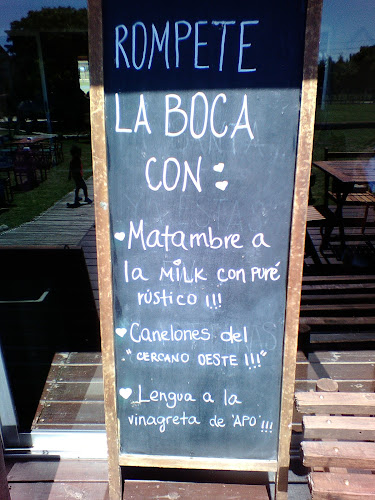 ROMPETE
LA BOCA
CON :
Matambre a
la MILK con puré
rústico !!!
Canelones del
"CERCANO OESTE !!!"
Lengua a la
vinagreta de 'APO' !!!